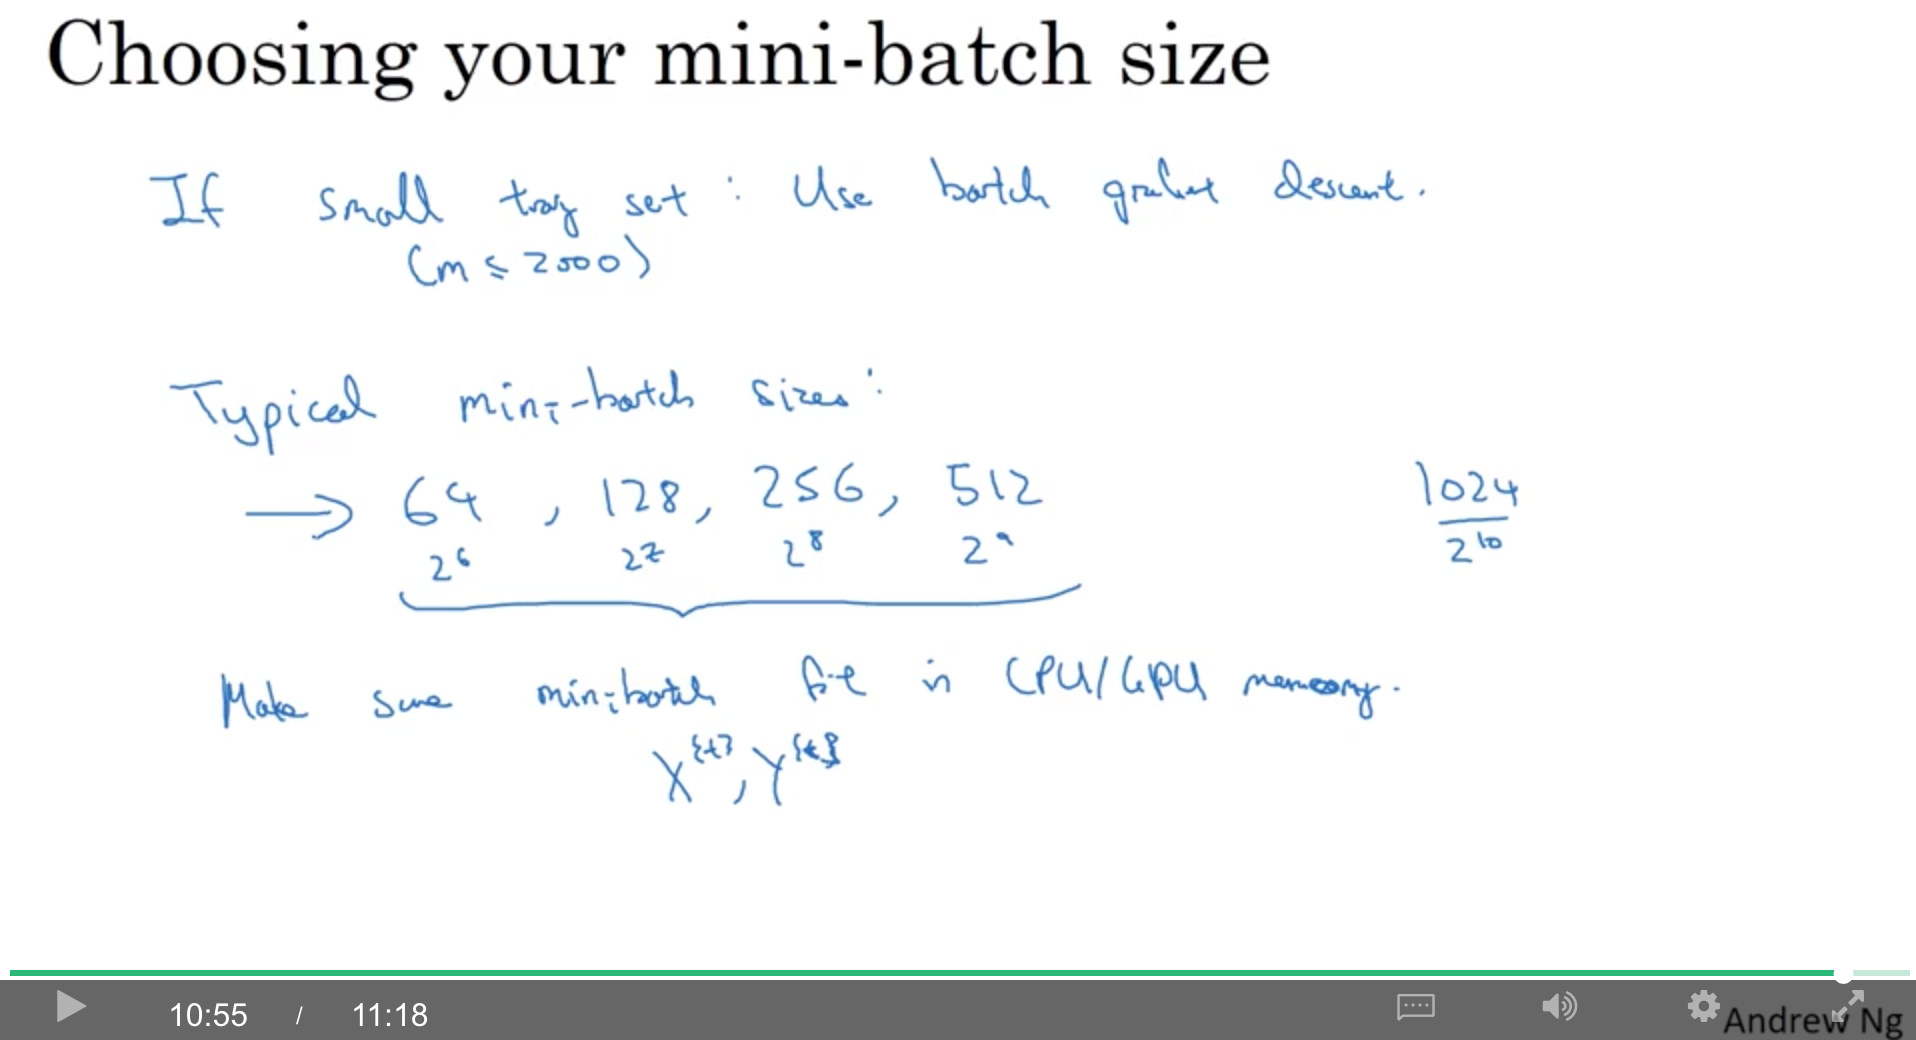 Choosing your mini-batch size
If small trag set : Use batch gradient descent.
(m ≤ 2000)
Typical mini-batch sizes:
→ 64 , 128, 256, 512 1024
2^6 2^7 2^8 2^9 2^10
Make sure minibatch fit in CPU/GPU memory.
X^{t}, Y^{t}
10:55 / 11:18
Andrew Ng